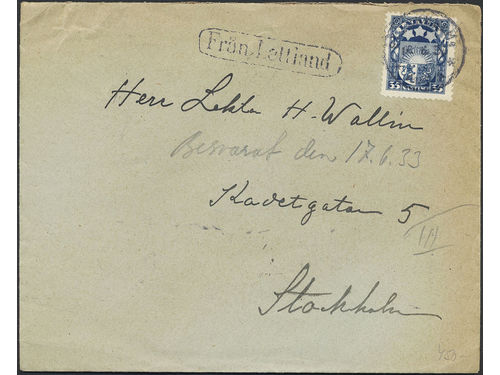 Från Lettland
LATVIJA
35 35
Herr Lektor H. Wallin
Besvarat den 17.6.33
Kadetgatan 5
Stockholm
450-